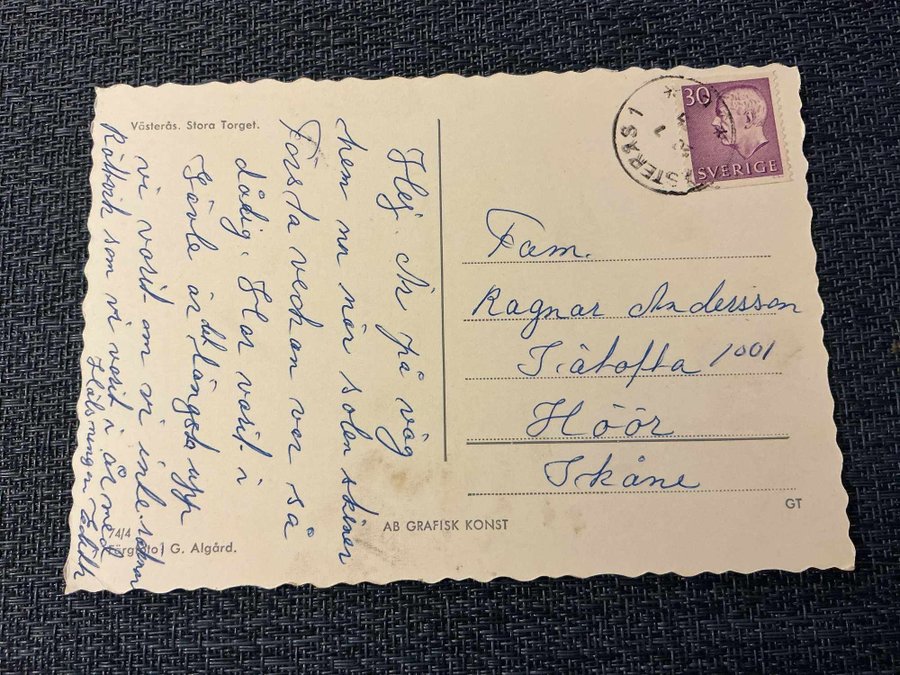 Västerås. Stora Torget.
Hej. Är på väg
hem nu när solen skiner
Första veckan var så
dålig. Har varit i
Gävle är det längst upp
vi varit om vi inte som
Rättvik som vi varit i år med
Hälsningar Edith
74/4
Färgfoto: G. Algård.
AB GRAFISK KONST
GT
VÄSTERÅS 1
30
SVERIGE
Fam.
Ragnar Andersson
Tjätofta 1001
Höör
Skåne